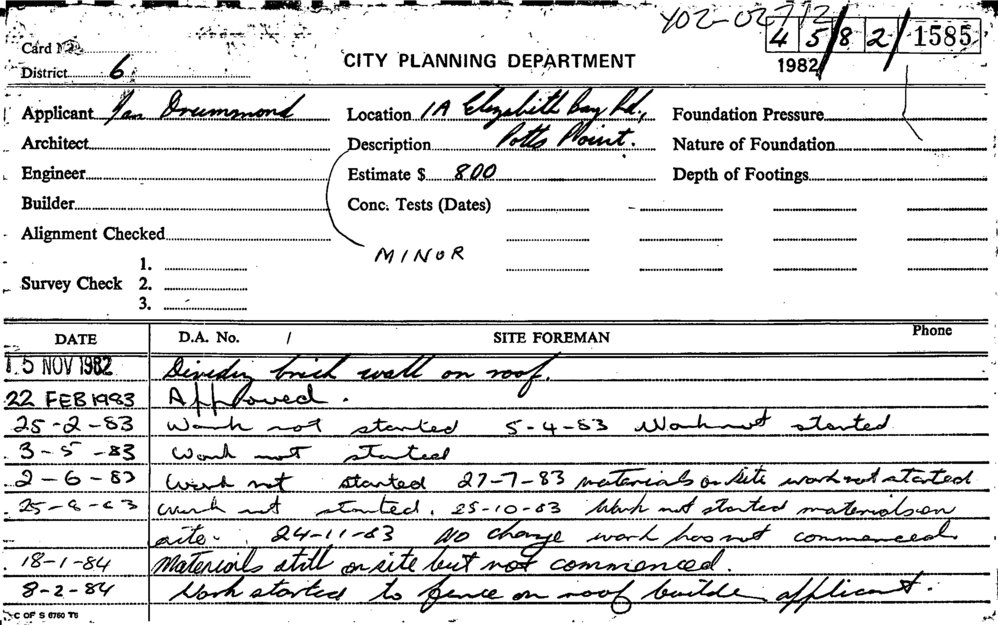 Y02-02712
Card No.
4 5/8 2/ 1585
1982
District 6
CITY PLANNING DEPARTMENT
Applicant Ian Drummond
Location 1A Elizabeth Bay Rd,
Foundation Pressure
Architect
Description Potts Point.
Nature of Foundation
Engineer
Estimate $ 800
Depth of Footings
Builder
Conc. Tests (Dates)
Alignment Checked
MINOR
1.
Survey Check 2.
3.
DATE D.A. No. / SITE FOREMAN Phone
15 NOV 1982 Dividing brick wall on roof.
22 FEB 1983 Approved.
25-2-83 Work not started 5-4-83 Work not started
3-5-83 Work not started
2-6-83 Work not started 27-7-83 materials on site work not started
work not started. 25-10-83 Work not started materials on
site. 24-11-83 No change work has not commenced
18-1-84 Materials still on site but not commenced.
8-2-84 Work started to fence on roof builder applicant.
C OF S 6760 T6